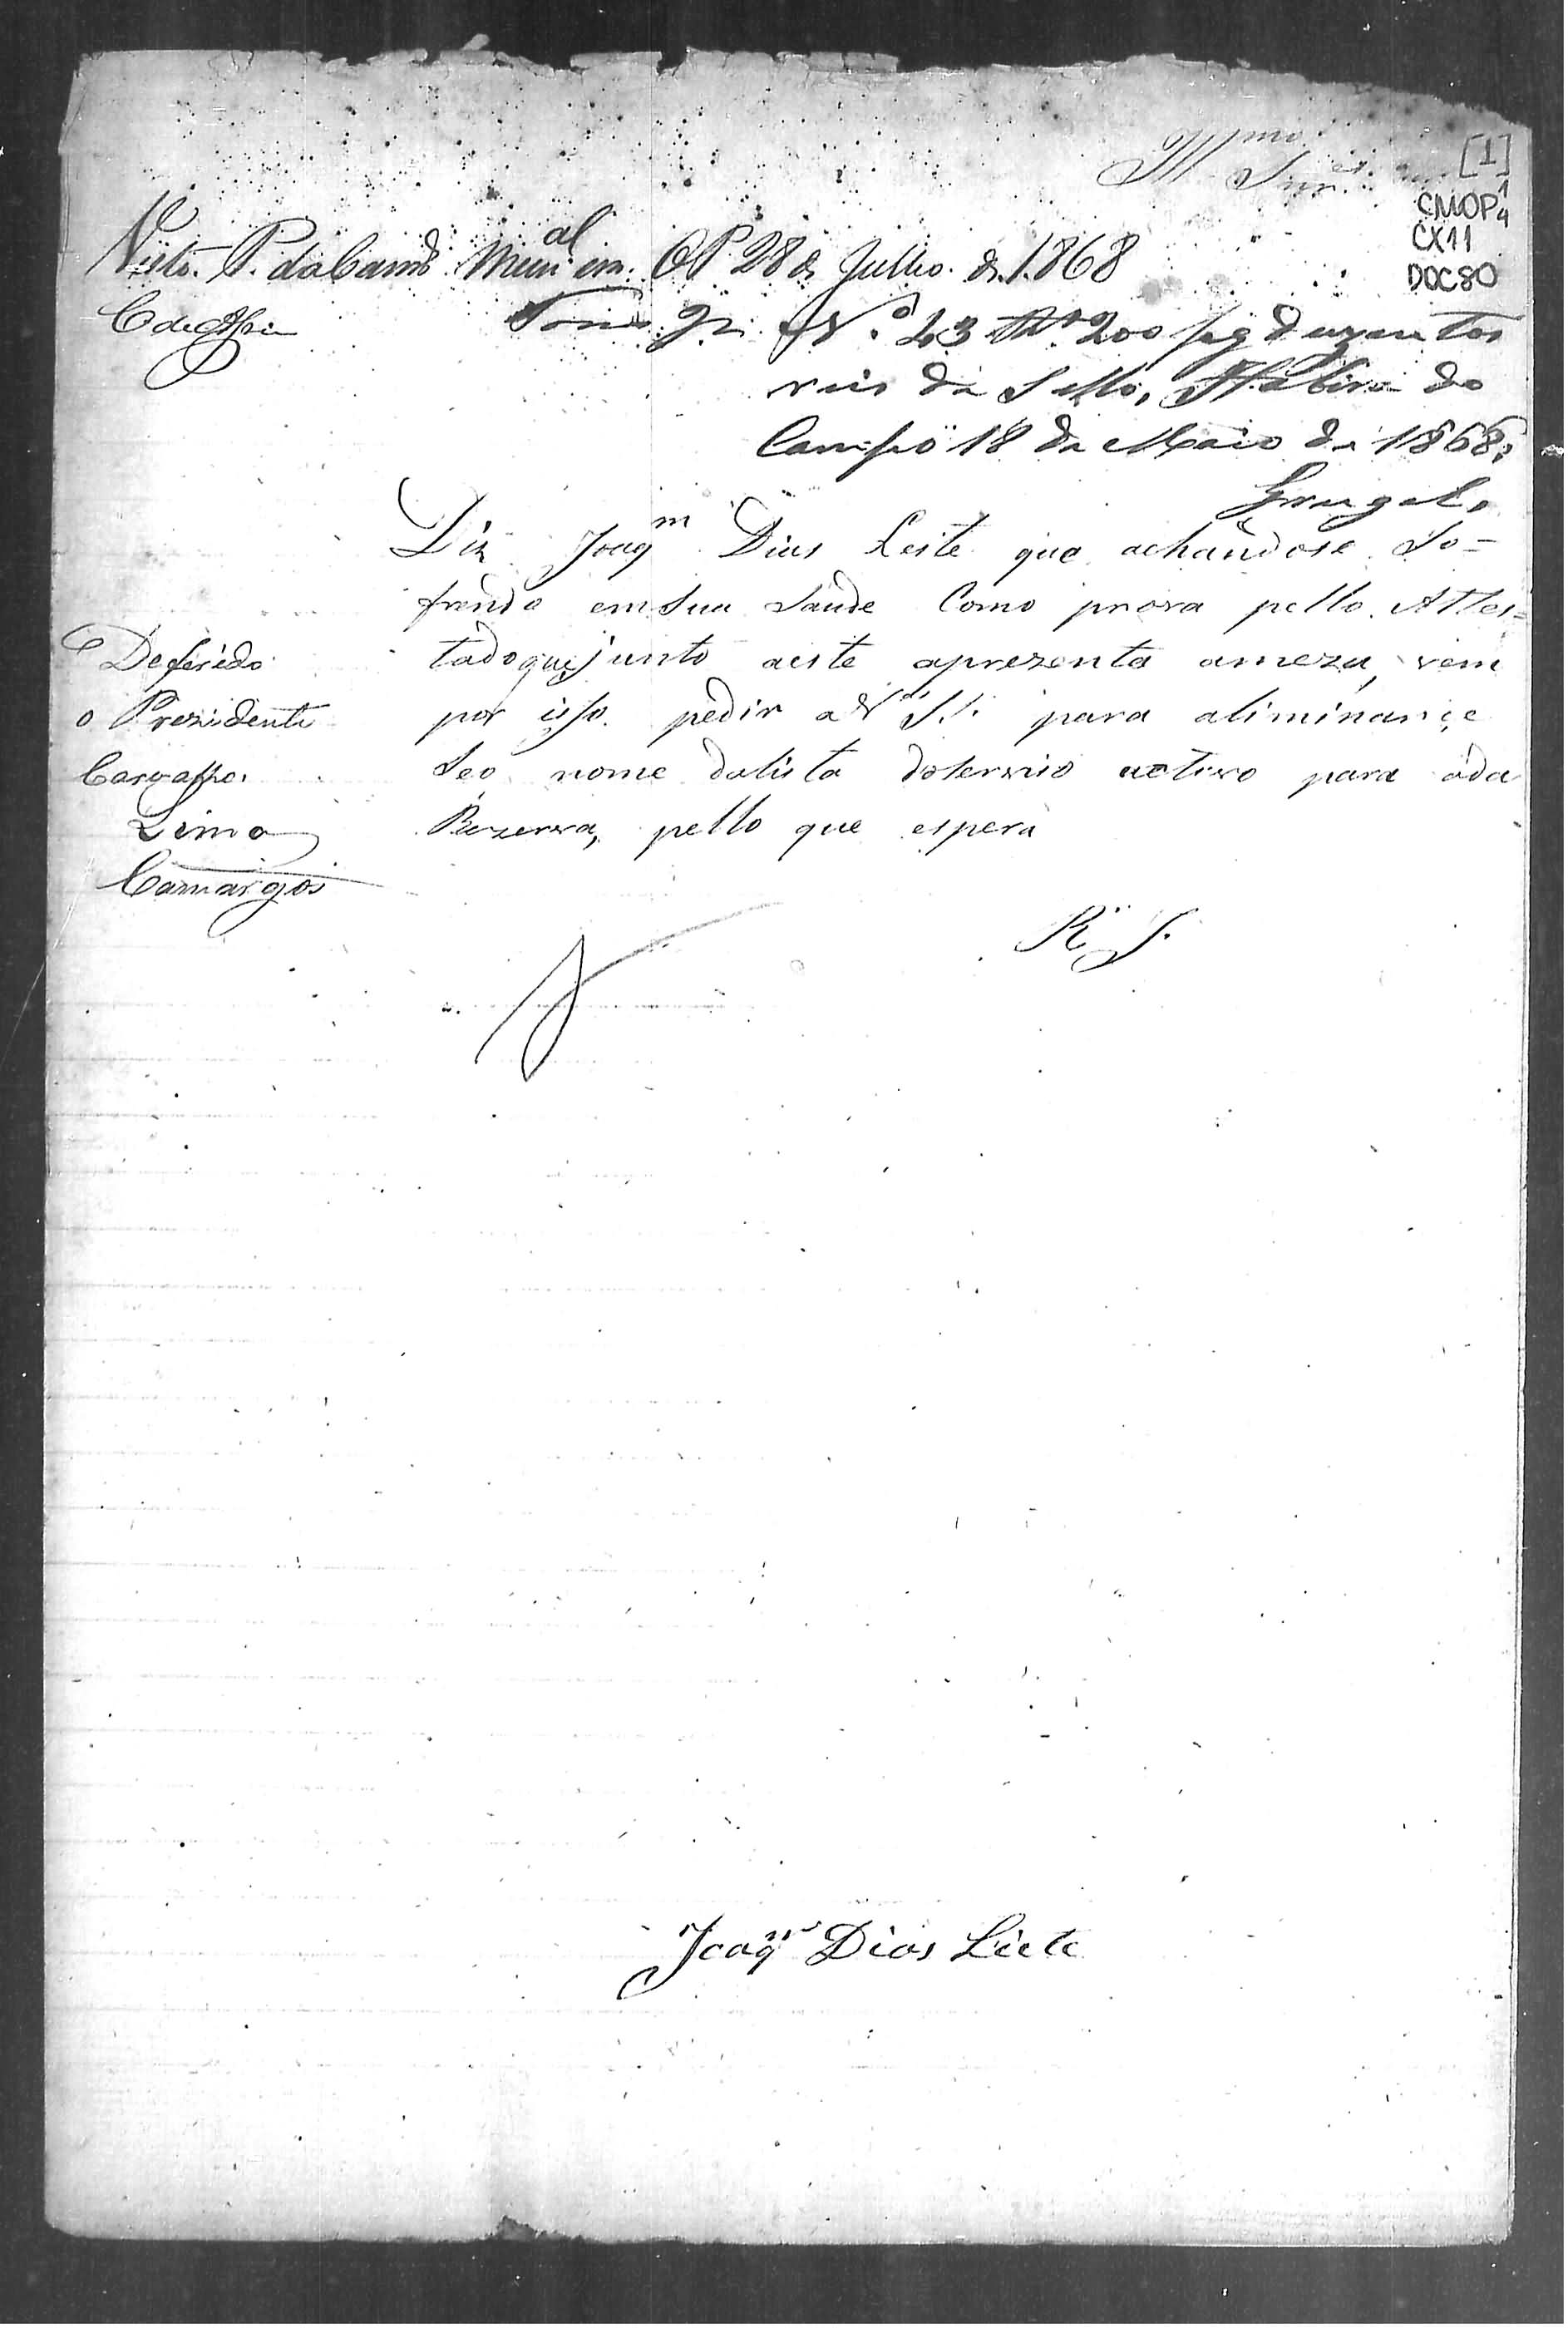 Illmos Snres
[1]
CMOP 1/4
CX11
DOC80
Visto. P. da Camª Munal em OP 28 de Julho de 1868
Nº 43 Rs 200 Pg duzentos
reis de Sello, Itabira do
Campo 18 de Maio de 1868.
Gurgel.
Diz Joaqm Dias Leite que achandose So=
frendo em Sua Saude Como prova pello Attes=
tado que junto aeste aprezenta ameza, vem
por isso pedir a V. S.S. para aliminarçe
Seo nome dalista doservico activo para ada
Rezerva, pello que espera
R. J.
Deferido
o Prezidente
Carvalho.
Lima
Camargos
Joaqm Dias Leite